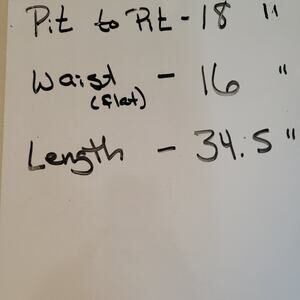 Pit to Pit - 18 "
Waist - 16 "
(flat)
Length - 34.5 "